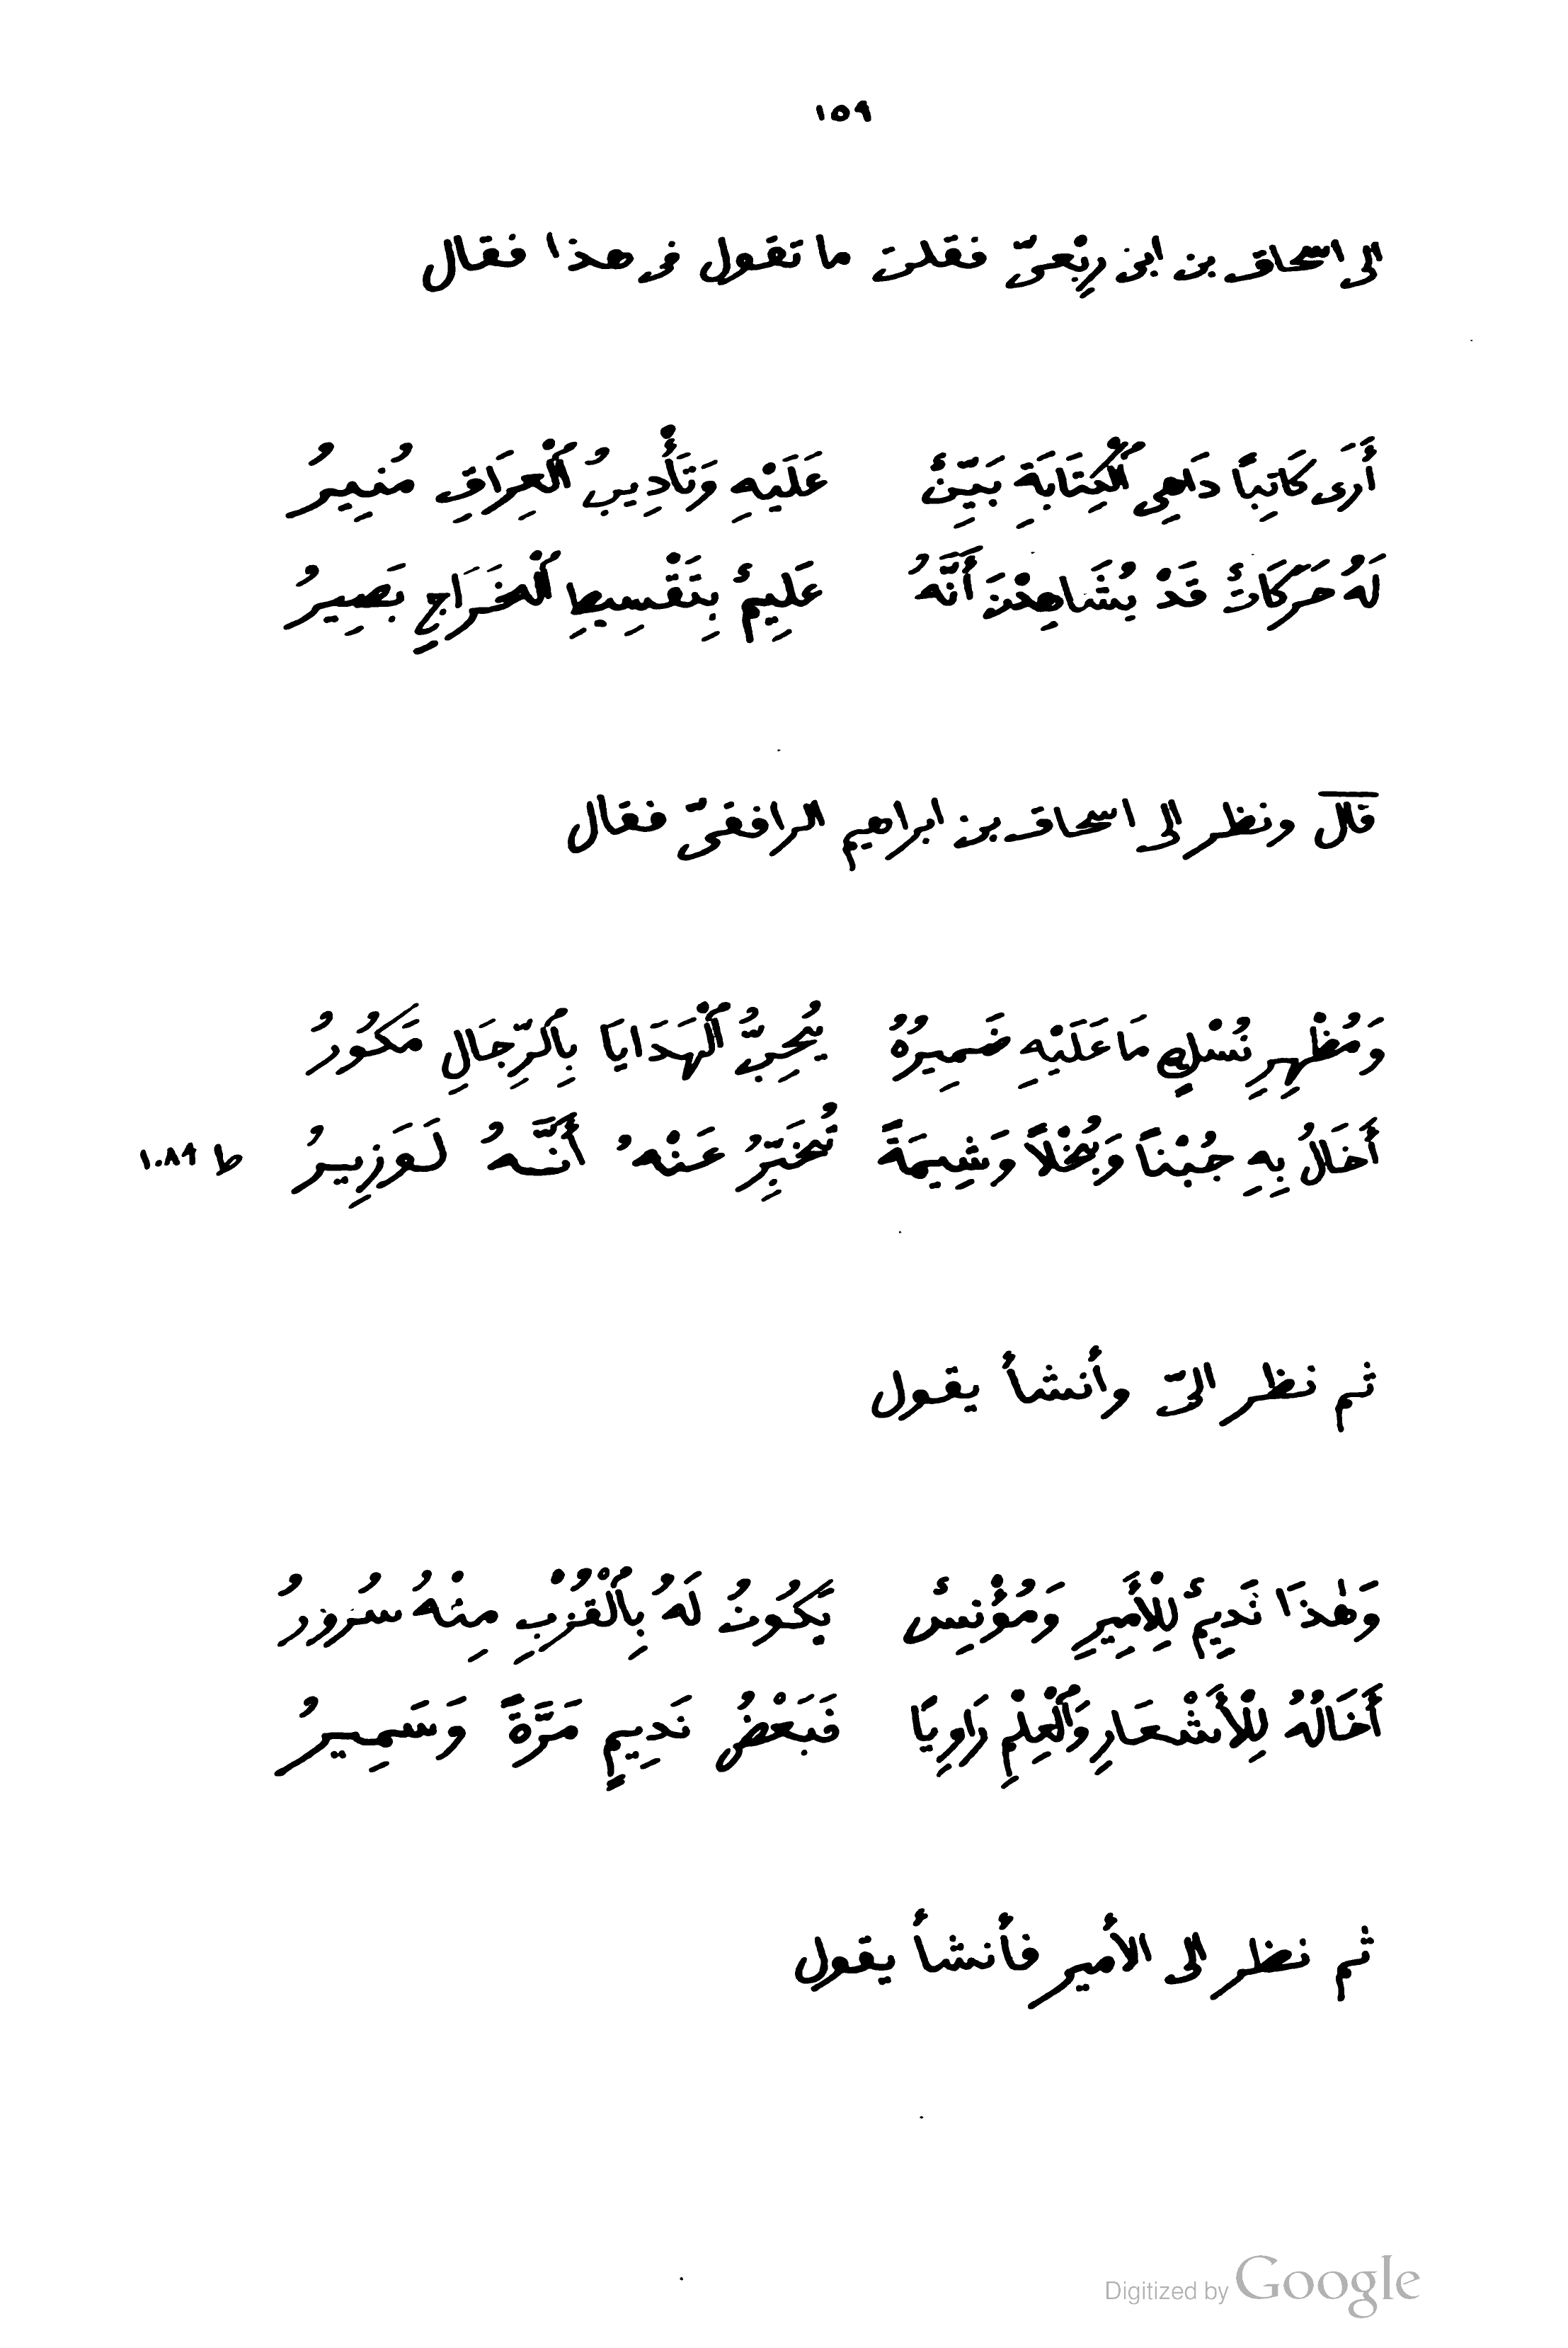 ١٥٩
الى اسحاق بن ابن رِبْعىّ فقلت ما تقول فى هذا فقال
أَرَى كَاتِباً دَاهِى ٱلْكِتَابَةِ بَيِّنٌ عَلَيْهِ وَتَأْدِيبُ ٱلْعِرَاقِ مُنِيرُ
لَهُ حَرَكَاتٌ قَدْ يُشَاهِدْنَ أَنَّهُ عَلِيمٌ بِتَقْسِيطِ ٱلْخَرَاجِ بَصِيرُ
قال ونظر الى اسحاق بن ابراهيم الرافقىّ فقال
وَمُظْهِرِ نُسْكٍ مَا عَلَيْهِ ضَمِيرُهُ يُحِبُّ ٱلْهَدَايَا بِٱلرِّجَالِ مَكُورُ
أَخَالُ بِهِ جُبْناً وَبُخْلاً وَشِيمَةً تُخَبِّرُ عَنْهُ أَنَّهُ لَوَزِيرُ ط ١٠٨٩
ثم نظر الىّ وأنشأ يقول
وَهٰذَا نَدِيمٌ لِلْأَمِيرِ وَمُؤْنِسٌ يَكُونُ لَهُ بِٱلْقُرْبِ مِنْهُ سُرُورُ
أَخَالُهُ لِلْأَشْعَارِ وَٱلْعِلْمِ رَاوِيًا فَبَعْضُ نَدِيمٍ مَرَّةً وَسَمِيرُ
ثم نظر الى الأمير فأنشأ يقول
Digitized by Google